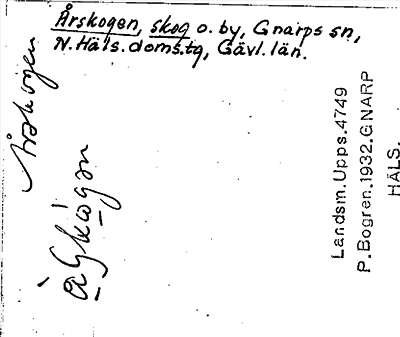 Årskogen, skog o. by, Gnarps sn,
N. Häls. doms.tg, Gävl. län.
Årskogen
Landsm. Upps. 4749
P. Bogren. 1932. GNARP
HÄLS.